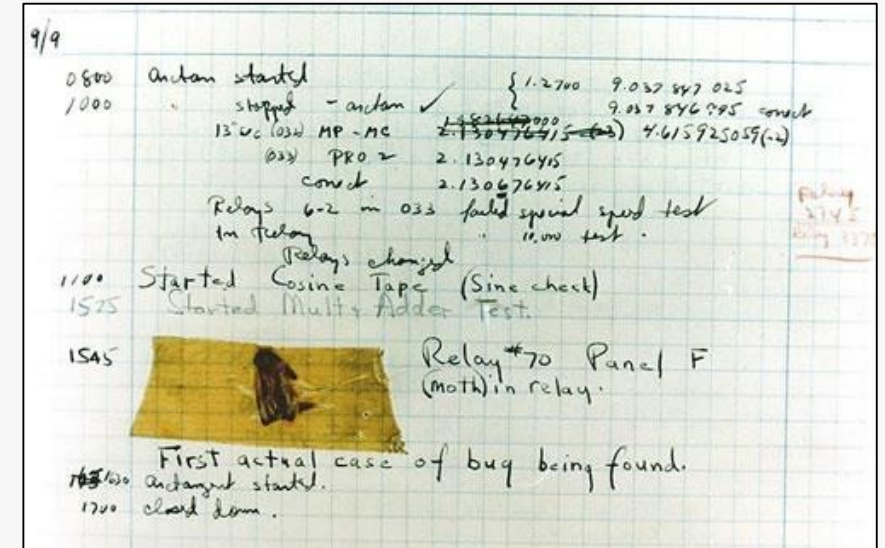 9/9
0800 Antan started
1000 " stopped - antan ✓ { 1.2700 9.037 847 025
9.037 846 995 conect
13"uc (032) MP - MC 2.130476415 (-3) 4.615925059(-2)
(033) PRO 2 2.130476415
conect 2.130676415
Relays 6-2 in 033 failed special speed test
In Relay " 11.00 test .
Relays changed
1100 Started Cosine Tape (Sine check)
1525 Started Mult + Adder Test.
1545 Relay #70 Panel F
(moth) in relay.
First actual case of bug being found.
1630 antangent started.
1700 closed down.
Relay